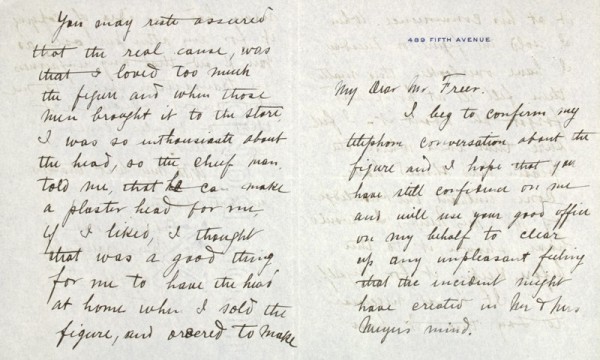 489 FIFTH AVENUE
My Dear Mr. Freer.
I beg to confirm my
telephone conversation about the
figure and I hope that you
have still confidence on me
and will use your good office
on my behalf to clear
up any unpleasant feeling
that the incident might
have created in Mr & Mrs
Meyer's mind.
You may reste assured
that the real cause, was
that I loved too much
the figure and when those
men brought it to the store
I was so enthousiaste about
the head, so the chief man
told me, that he can make
a plaster head for me,
if I liked, I thought
that was a good thing
for me to have the head
at home when I sold the
figure, and ordered to make